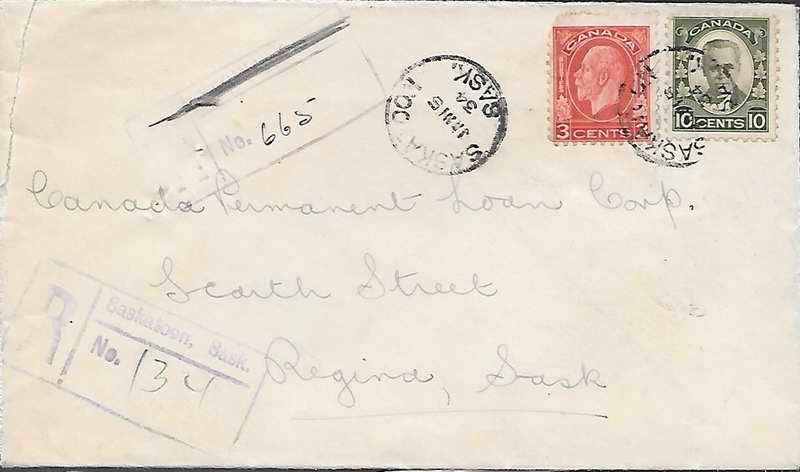 CANADA
3 CENTS
CANADA
10 CENTS 10
SASKATOON
JAN 15
34
SASK.
No. 665
Canada Permanent Loan Corp.
Scarth Street
Regina, Sask
R
Saskatoon, Sask.
No. 134